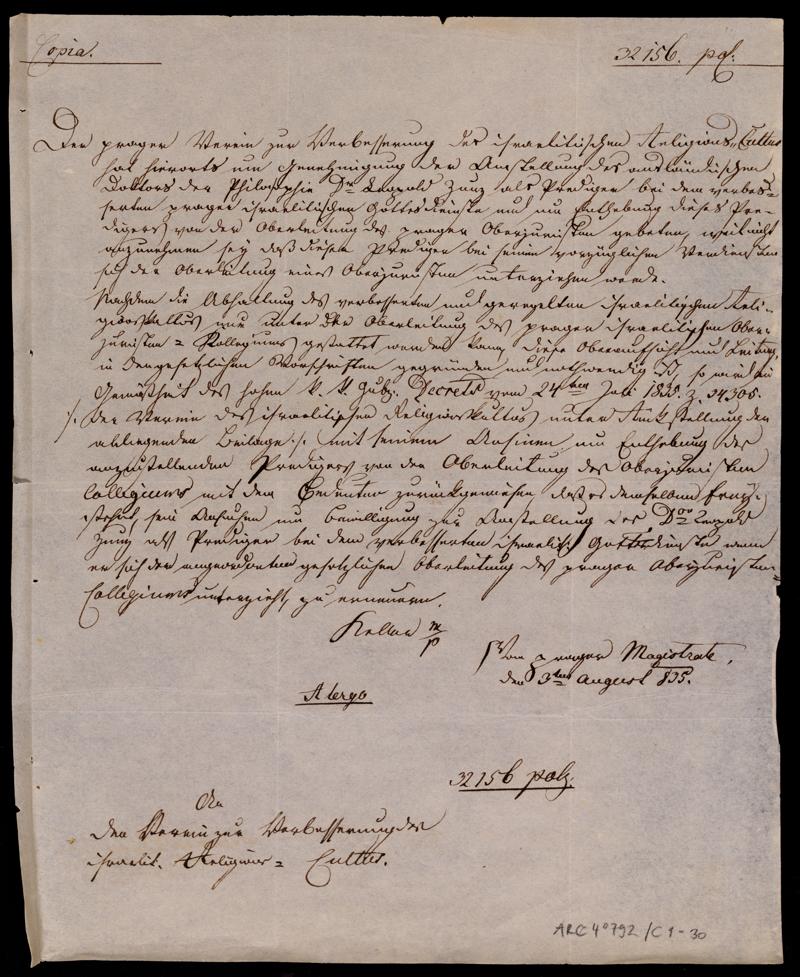 Copia.
32156. pol:
Der prager Verein zur Verbesserung des israelitischen Religions-Cultus
hat hierorts um Genehmigung der Anstellung des ausländischen
Doktors der Philosophie Dr. Leopold Zunz als Prediger bei dem verbes-
serten prager israelitischen Gottesdienste und um Enthebung dieses Pre-
digers von der Oberleitung des prager Oberjuristen gebeten, weil nicht
anzunehmen sey daß dieser Prediger bei seinen vorzüglichen Verdiensten
sich der Oberleitung eines Oberjuristen unterziehen werde.
Nachdem die Abhaltung des verbesserten und geregelten israelitischen Reli-
gionskultus nur unter der Oberleitung des prager israelitischen Ober-
juristen = Kollegiums gestattet werden kann, diese Oberaufsicht und Leitung
in den gesetzlichen Vorschriften gegründet und nothwendig ist, so wird in
Gemäßheit des hohen k. k. Gub. Decrets vom 24ten Juli 1835. Z. 34305.
/. der Verein des israelitischen Religionskultus unter Rückstellung der
anliegenden Beilage ./. mit seinem Ansinnen um Enthebung des
anzustellenden Predigers von der Oberleitung des Oberjuristen
Collegiums mit dem Bedeuten zurückgewiesen daß es demselben frey-
stehe, sein Ansuchen um Bewilligung zur Anstellung des Dor Leopold
Zunz als Prediger bei dem verbesserten israelit: Gottesdienste wenn
er sich der angeordneten gesetzlichen Oberleitung des prager Oberjuristen=
Collegiums unterzieht, zu erneuern.
Keller m/p
Vom prager Magistrate,
den 3ten August 835.
A tergo
32156 polz.
An
den Verein zur Verbesserung des
israelit. Religions = Cultus.
ARC 4° 792 / C 1 - 30